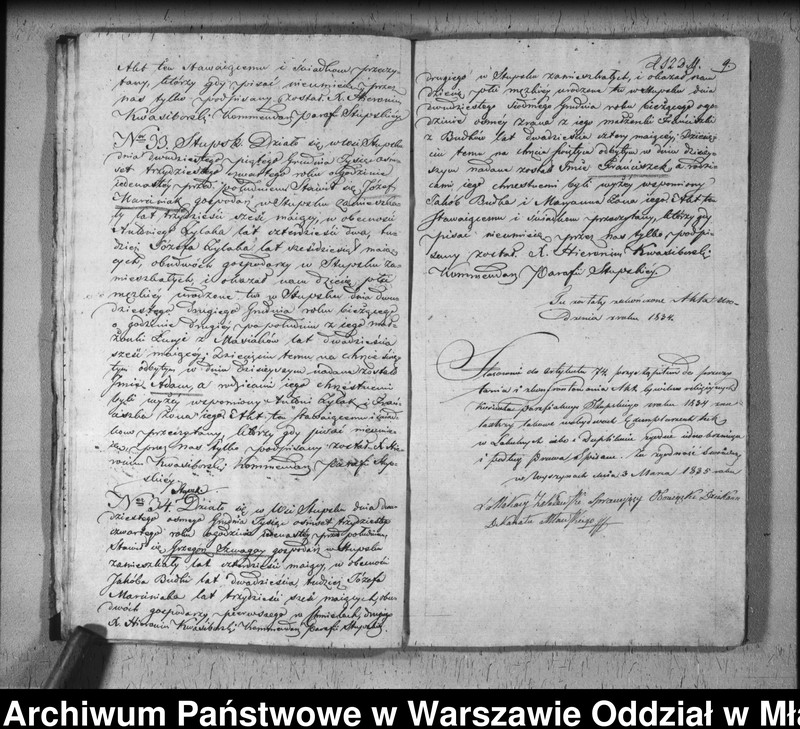 Akt ten stawaiącemu i świadkom przeczy-
tany, którzy gdy pisać nieumieią przez
nas tylko podpisany został. X. Hieronim
Kwasiborski Kommendarz Parafii Stupskiey
Nro 33. Stupsk. Działo się w Wsi Stupsku
dnia dwudziestego piątego Grudnia Tysiąc osm-
set trzydziestego czwartego roku o godzinie
iedenastey przed południem Stawił się Józef
Marciniak gospodarz w Stupsku zamieszka-
ły lat trzydzieści sześć maiący, w obecności
Antoniego Żylaka lat czterdzieści dwa, tu-
dzież Józefa Cylaka lat sześćdziesiąt maią-
cych, obudwóch gospodarzy w Stupsku za-
mieszkałych, i okazał nam dziecię płci
męzkiey urodzone tu w Stupsku dnia dwu-
dziestego drugiego Grudnia roku bieżącego
o godzinie drugiey po południu z iego mał-
żonki Łucyi z lat dwadzieścia
sześć maiącey; Dziecięciu temu na chrzcie świę-
tym odbytym w dniu dzisieyszym nadane zostało
Imię Adam, a rodzicami iego chrzestnemi
byli wyżey wspomniony Antoni Żylak i Fran-
ciszka żona iego. Akt ten stawaiącemu i świad-
kom przeczytany, którzy gdy pisać nieumie-
ią, przez nas tylko podpisany został. X. Hie-
ronim Kwasiborski Kommendarz Parafii Stu-
pskiey.
Stupsk
Nro 34. Działo się w Wsi Stupsku dnia dwu-
dziestego osmego Grudnia Tysiąc osmset trzydziestego
czwartego roku o godzinie iedenastey przed południem,
Stawił się Grzegorz Szwagrzy gospodarz w Stupsku
zamieszkały lat czterdzieści maiący, w obecności
Jakóba Budki lat dwadzieścia, tudzież Józefa
Marciniaka lat trzydzieści sześć maiących, obu-
dwóch gospodarzy pierwszego w drugiego
X. Hieronim Kwasiborski Kommendarz Parafii Stupskiey.
9.
drugiego w Stupsku zamieszkałych, i okazał nam
dziecię płci męzkiey urodzone tu w Stupsku dnia
dwudziestego siódmego Grudnia roku bieżącego o go-
dzinie osmey zrana z iego małżonki Franciszki
z Budków lat dwadzieścia cztery maiącey; Dziecię-
ciu temu na chrzcie świętym odbytym w dniu dzisiey-
szym nadane zostało Imię Franciszek, a rodzi-
cami iego chrzestnemi byli wyżey wspomniony
Jakób Budka i Maryanna żona iego. Akt ten
stawaiącemu i świadkom przeczytany, którzy gdy
pisać nieumieią, przez nas tylko podpi-
sany został. X. Hieronim Kwasiborski
Kommendarz Parafii Stupskiey.
Tu zostały zakończone Akta uro-
dzenia z roku 1834.
Stosownie do Artykułu 74. przystąpiłem do przeyrz-
enia i Akt Cywilno religiynych
Parafialnego Stupskiego z roku 1834
Exemplarzach
w iako i Duplikacie zgodne iedno brzmiące
i podług Prawa spisane. Za zgodność świadczę
w Wyszynach dnia 3 Marca 1835 roku
sprawuiący Obowiązki Dziekana
Dekanatu Mławskiego
Archiwum Państwowe w Warszawie Oddział w Mła